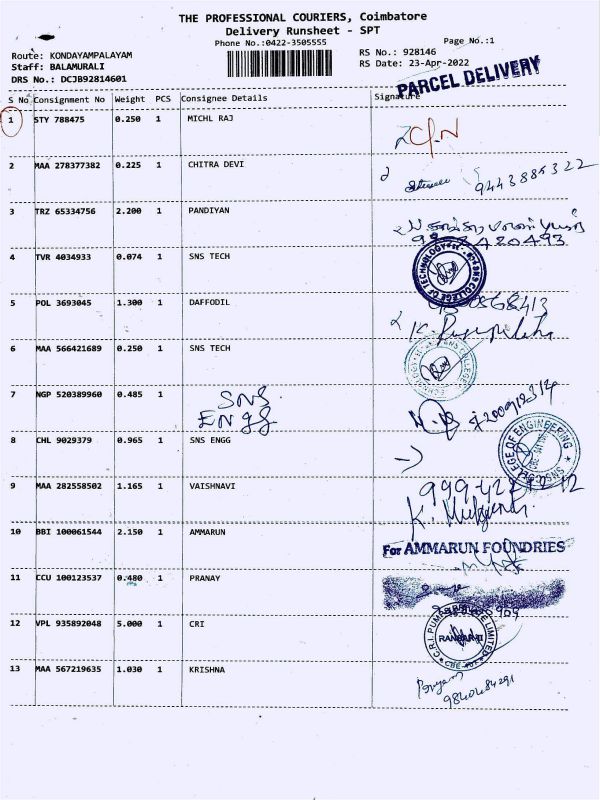 THE PROFESSIONAL COURIERS, Coimbatore
Delivery Runsheet - SPT
Phone No.:0422-3505555
Page No.:1
Route: KONDAYAMPALAYAM
RS No.: 928146
Staff: BALAMURALI
RS Date: 23-Apr-2022
DRS No.: DCJB92814601
PARCEL DELIVERY
S No Consignment No Weight PCS Consignee Details Signature
1 STY 788475 0.250 1 MICHL RAJ
2 MAA 278377382 0.225 1 CHITRA DEVI 9443885322
3 TRZ 65334756 2.200 1 PANDIYAN
4 TVR 4034933 0.074 1 SNS TECH
5 POL 3693045 1.300 1 DAFFODIL
6 MAA 566421689 0.250 1 SNS TECH
7 NGP 520389960 0.485 1 SNS
ENGG
8 CHL 9029379 0.965 1 SNS ENGG
SNS COLLEGE OF ENGINEERING
9 MAA 282558502 1.165 1 VAISHNAVI
10 BBI 100061544 2.150 1 AMMARUN
For AMMARUN FOUNDRIES
11 CCU 100123537 0.480 1 PRANAY
12 VPL 935892048 5.000 1 CRI
13 MAA 567219635 1.030 1 KRISHNA